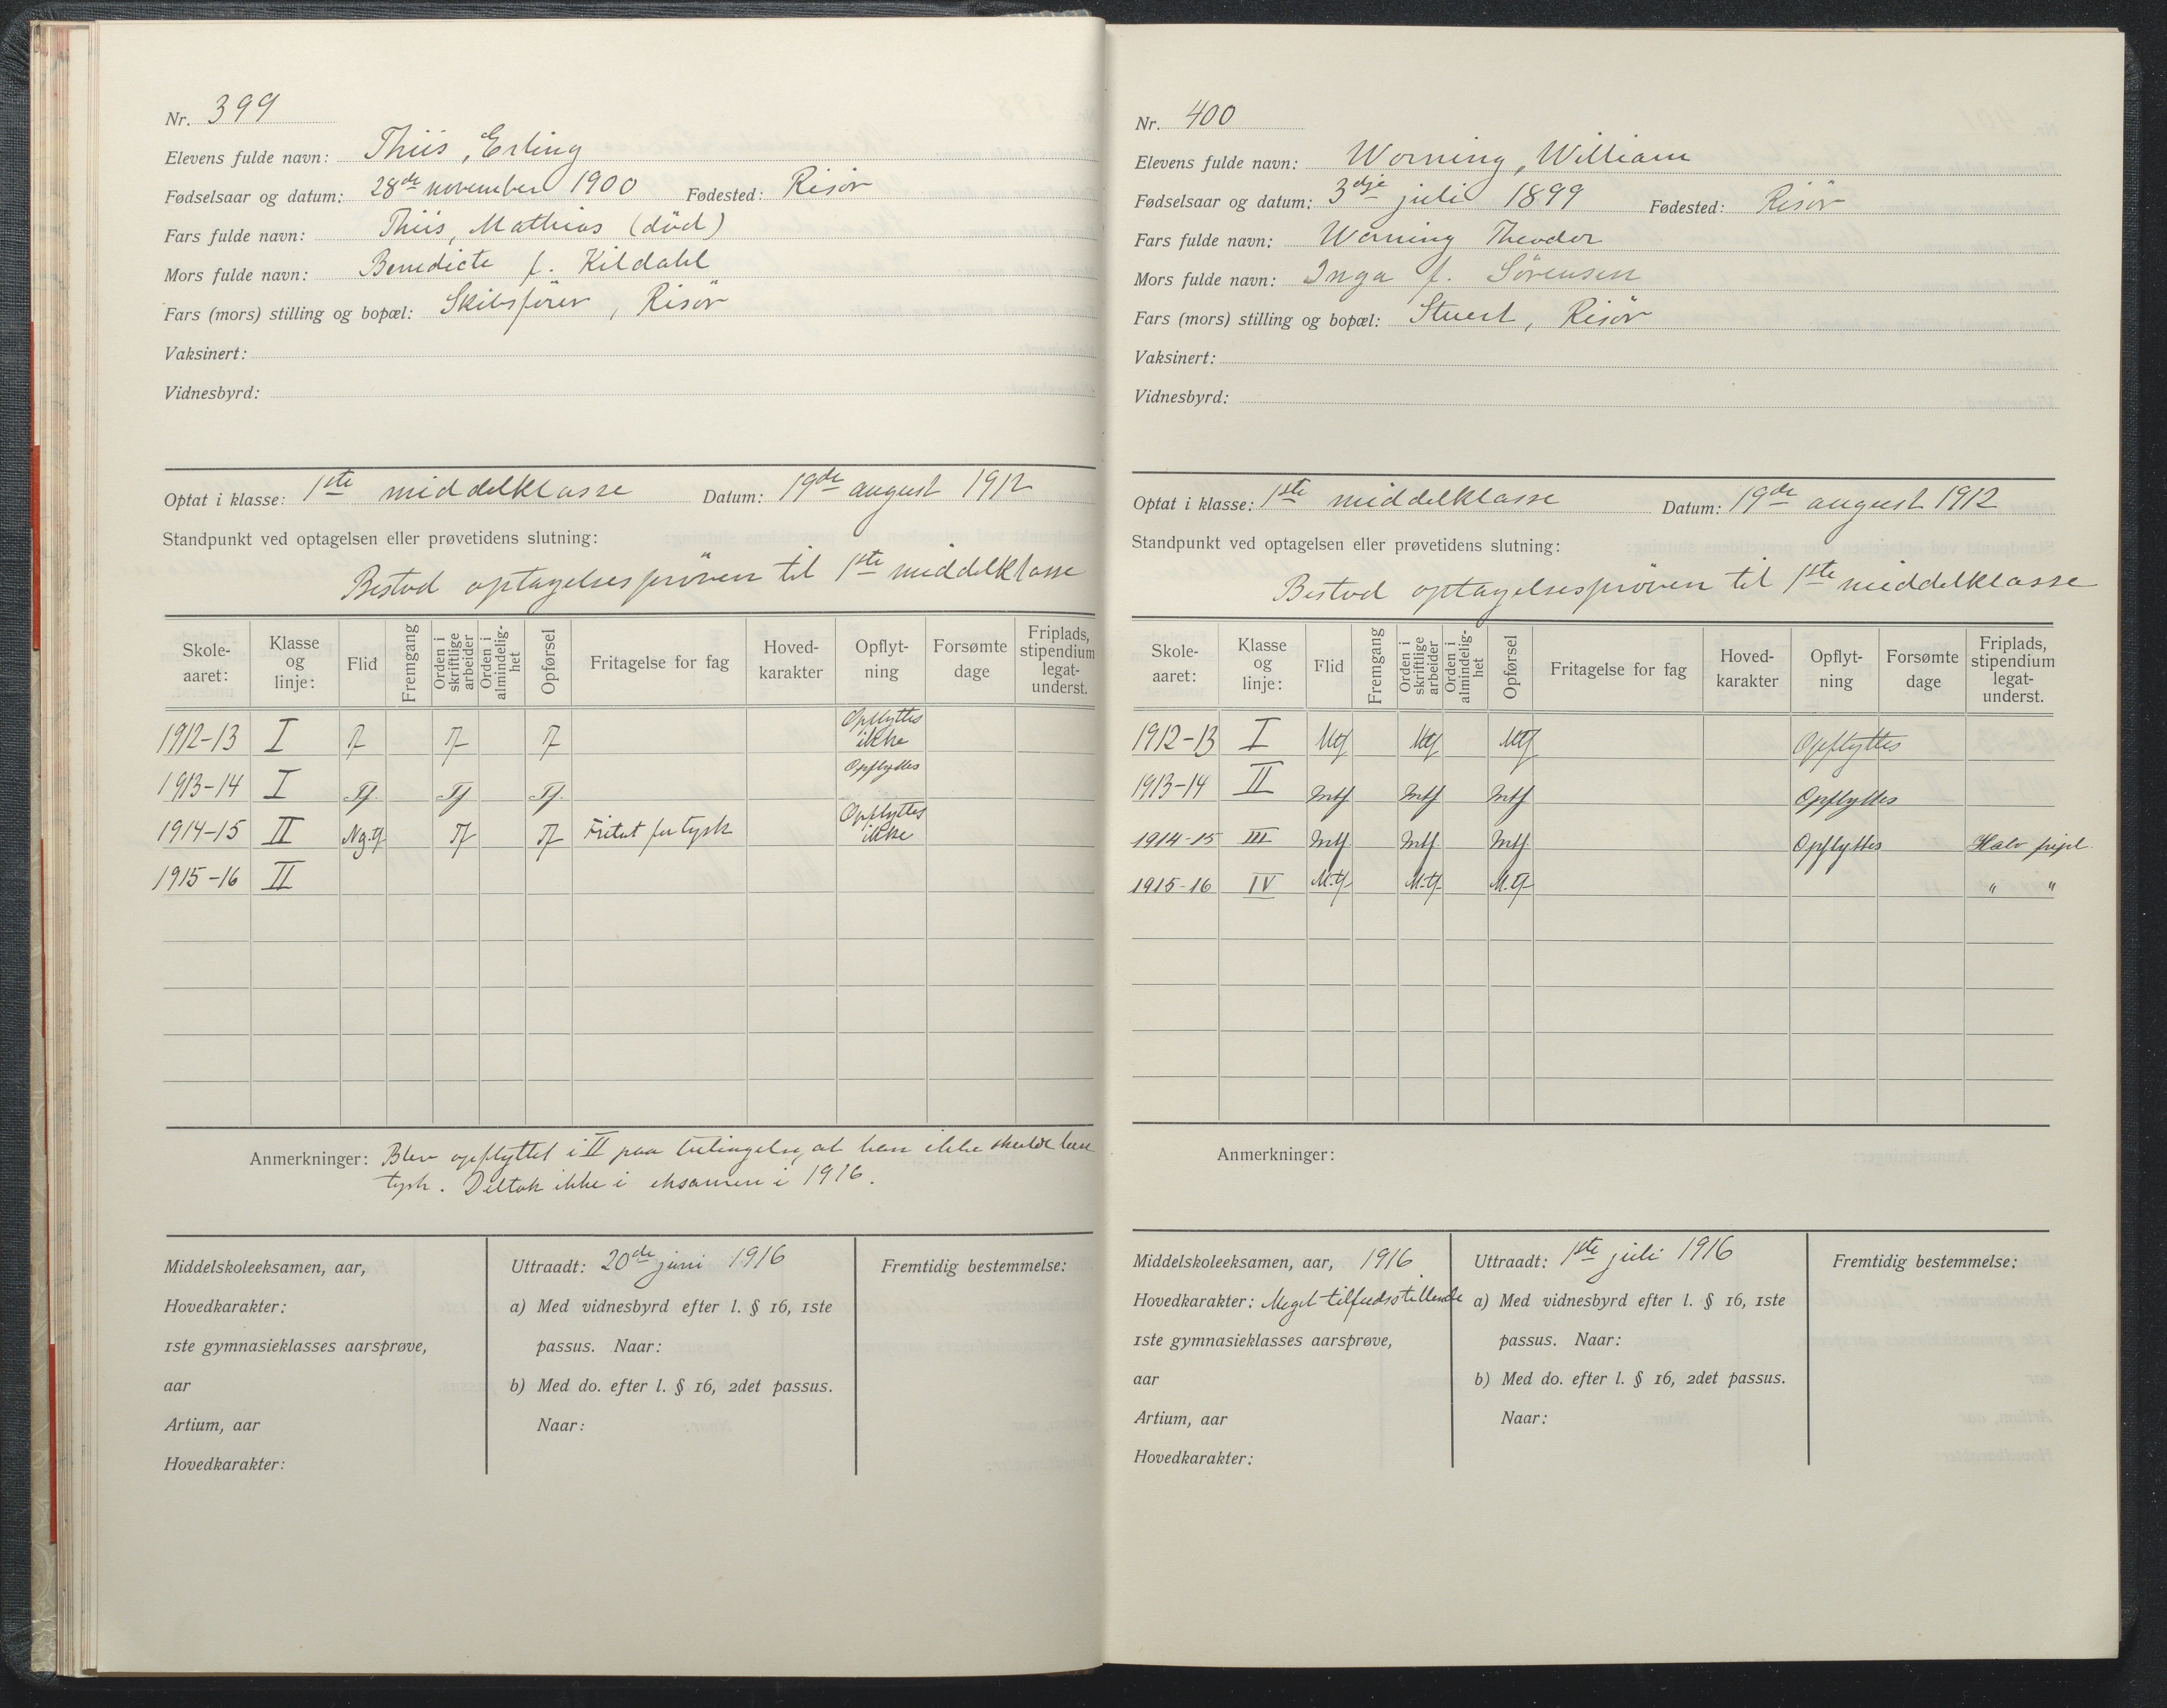 Nr. 399
Elevens fulde navn: Thiis, Erling
Fødselsaar og datum: 28de november 1900 Fødested: Risör
Fars fulde navn: Thiis, Mathias (död)
Mors fulde navn: Benedicte f. Kildahl
Fars (mors) stilling og bopæl: Skibsförer, Risör
Vaksinert:
Vidnesbyrd:
Optat i klasse: 1ste middelklasse Datum: 19de august 1912
Standpunkt ved optagelsen eller prøvetidens slutning:
Bestod optagelsespröven til 1ste middelklasse
Skole-aaret: Klasse og linje: Flid Fremgang Orden i skriftlige arbeider Orden i almindelig-het Opførsel Fritagelse for fag Hoved-karakter Opflyt-ning Forsømte dage Friplads, stipendium legat-underst.
1912-13 I Tf Tf Tf Opflyttes ikke
1913-14 I Tf. Tf Tf. Opflyttes
1914-15 II Ng.tf Tf Tf Fritat for tysk Opflyttes ikke
1915-16 II
Anmerkninger: Blev opflyttet i II paa betingelse, at han ikke skulde læse
tysk. Deltok ikke i eksamen i 1916.
Middelskoleeksamen, aar,
Hovedkarakter:
1ste gymnasieklasses aarsprøve,
aar
Artium, aar
Hovedkarakter:
Uttraadt: 20de juni 1916
a) Med vidnesbyrd efter l. § 16, 1ste
passus. Naar:
b) Med do. efter l. § 16, 2det passus.
Naar:
Fremtidig bestemmelse:
Nr. 400
Elevens fulde navn: Worning, William
Fødselsaar og datum: 3dje juli 1899 Fødested: Risör
Fars fulde navn: Worning Theodor
Mors fulde navn: Inga f. Sörensen
Fars (mors) stilling og bopæl: Stuert, Risör
Vaksinert:
Vidnesbyrd:
Optat i klasse: 1ste middelklasse Datum: 19de august 1912
Standpunkt ved optagelsen eller prøvetidens slutning:
Bestod optagelsespröven til 1ste middelklasse
Skole-aaret: Klasse og linje: Flid Fremgang Orden i skriftlige arbeider Orden i almindelig-het Opførsel Fritagelse for fag Hoved-karakter Opflyt-ning Forsømte dage Friplads, stipendium legat-underst.
1912-13 I Mtf Mtf Mtf Opflyttes
1913-14 II Mtf Mtf Mtf Opflyttes
1914-15 III Mtf Mtf Mtf Opflyttes Halv fripl.
1915-16 IV M.tf M.tf M.tf " "
Anmerkninger:
Middelskoleeksamen, aar, 1916
Hovedkarakter: Meget tilfredsstillende
1ste gymnasieklasses aarsprøve,
aar
Artium, aar
Hovedkarakter:
Uttraadt: 1ste juli 1916
a) Med vidnesbyrd efter l. § 16, 1ste
passus. Naar:
b) Med do. efter l. § 16, 2det passus.
Naar:
Fremtidig bestemmelse: